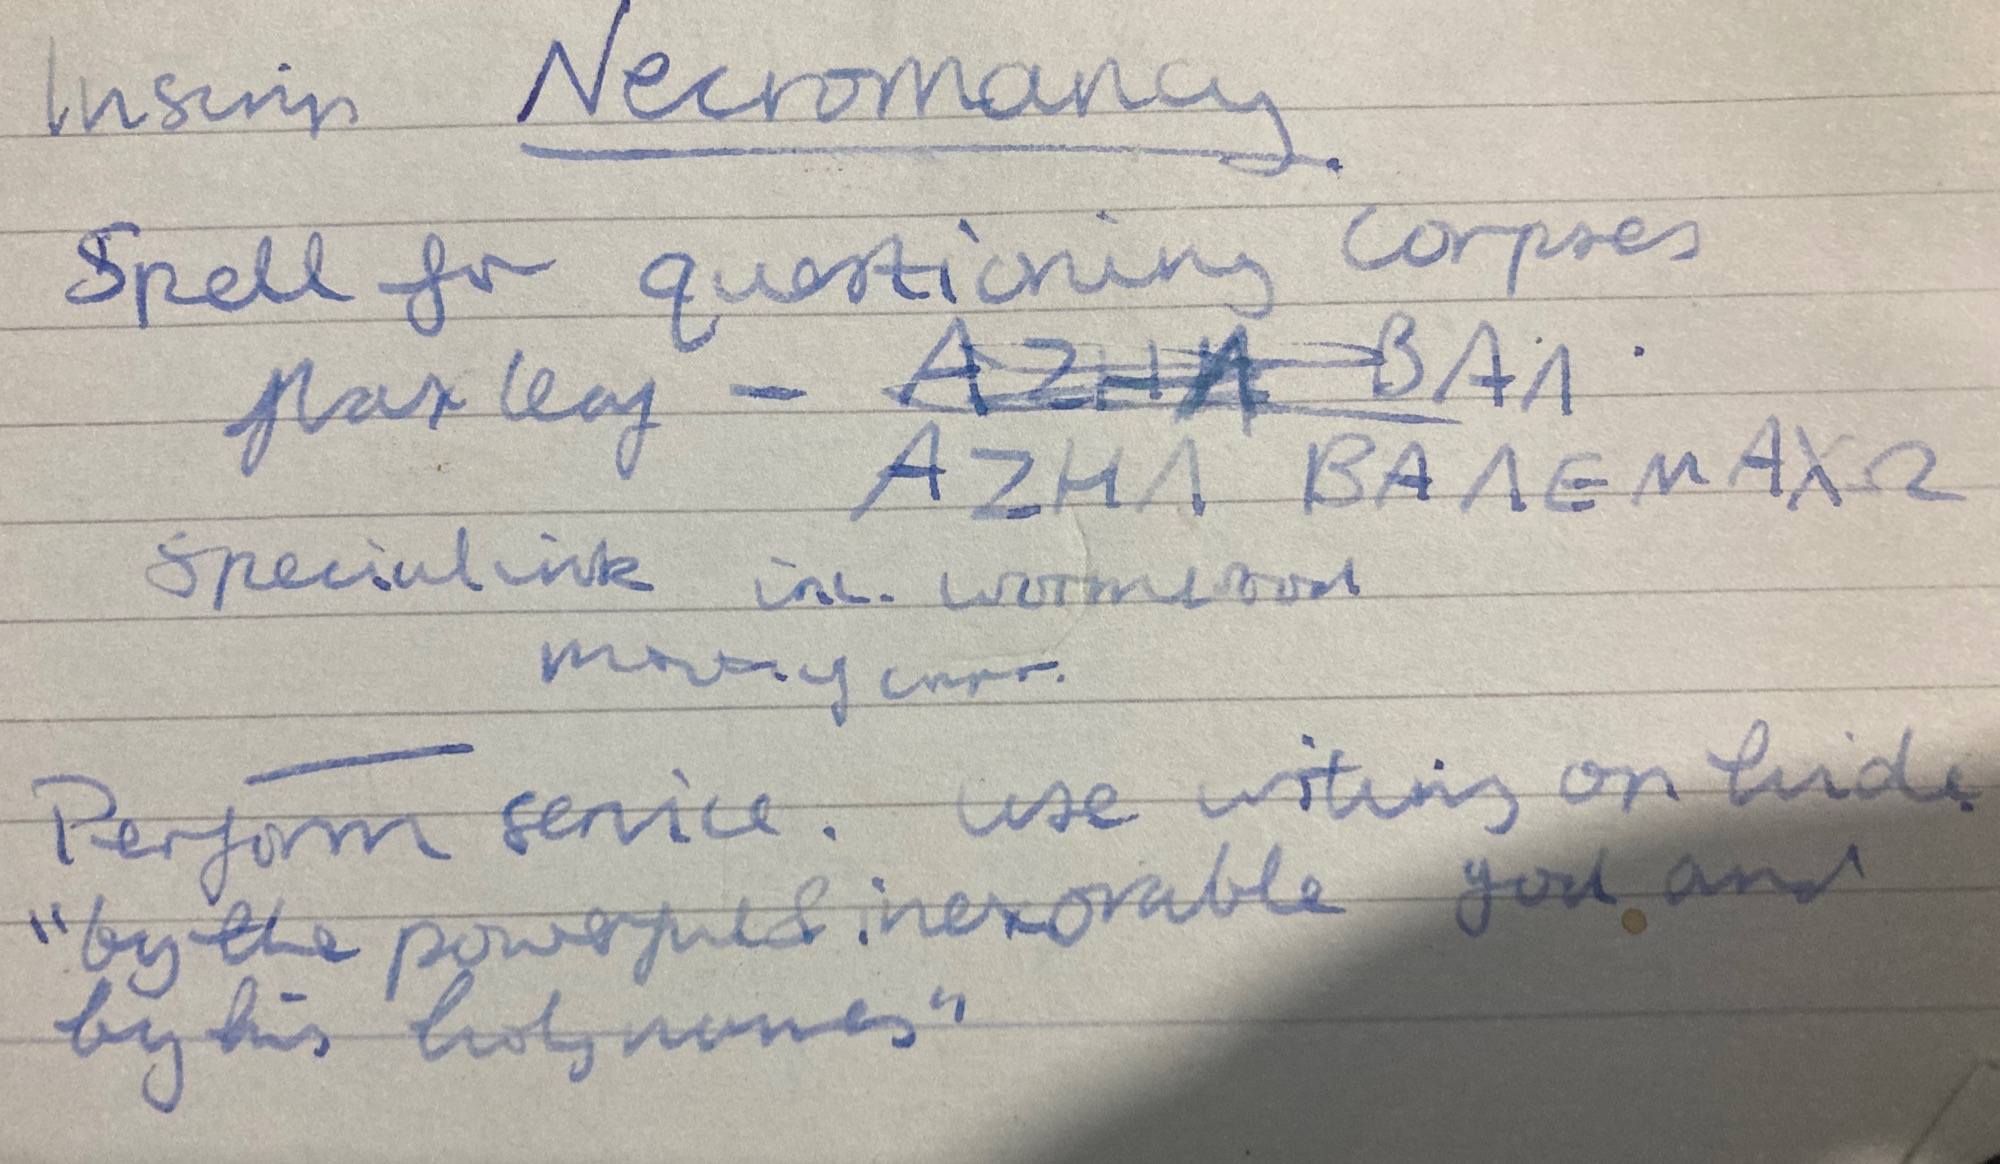 Inscrip Necromancy.
Spell for questioning corpses
flax leaf - AZHΛ BAΛ.
AZHΛ BAΛEMAXΩ
Special ink inc. wormwood
Perform service. use writing on hide
"by the powerful & inexorable god and
by his holy names"